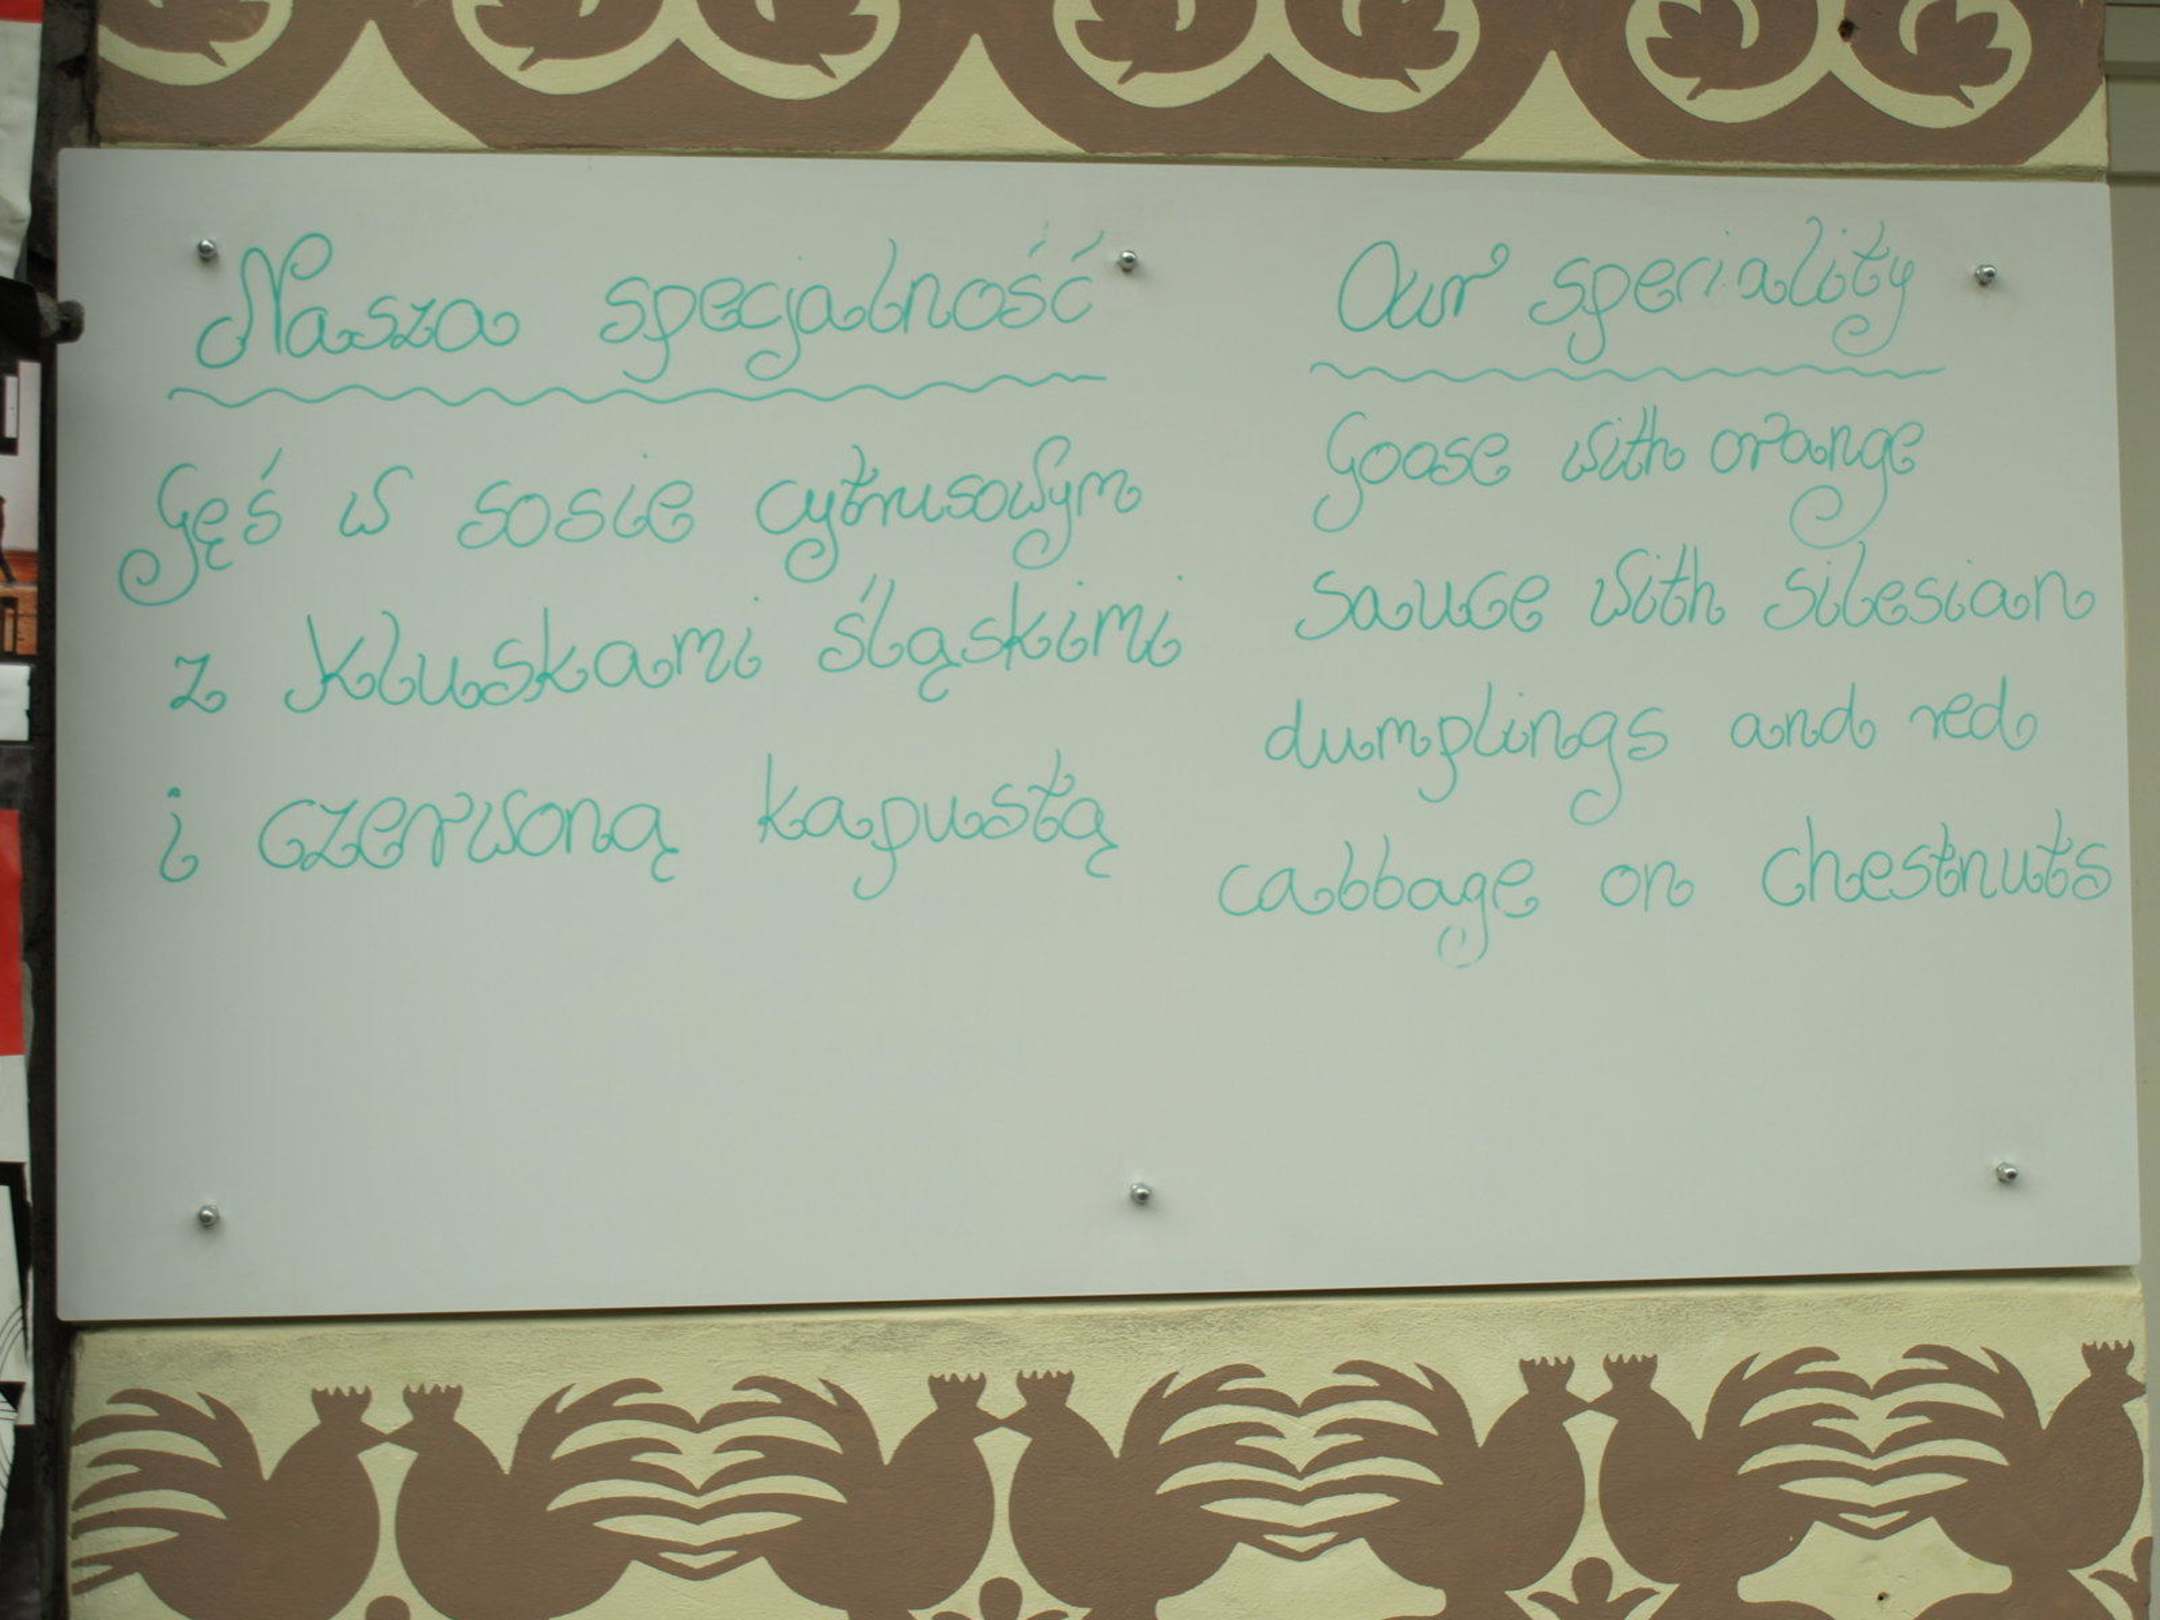 Nasza specjalność
Gęś w sosie cytrusowym
z kluskami śląskimi
i czerwoną kapustą
Our speciality
Goose with orange
sauce with silesian
dumplings and red
cabbage on chestnuts